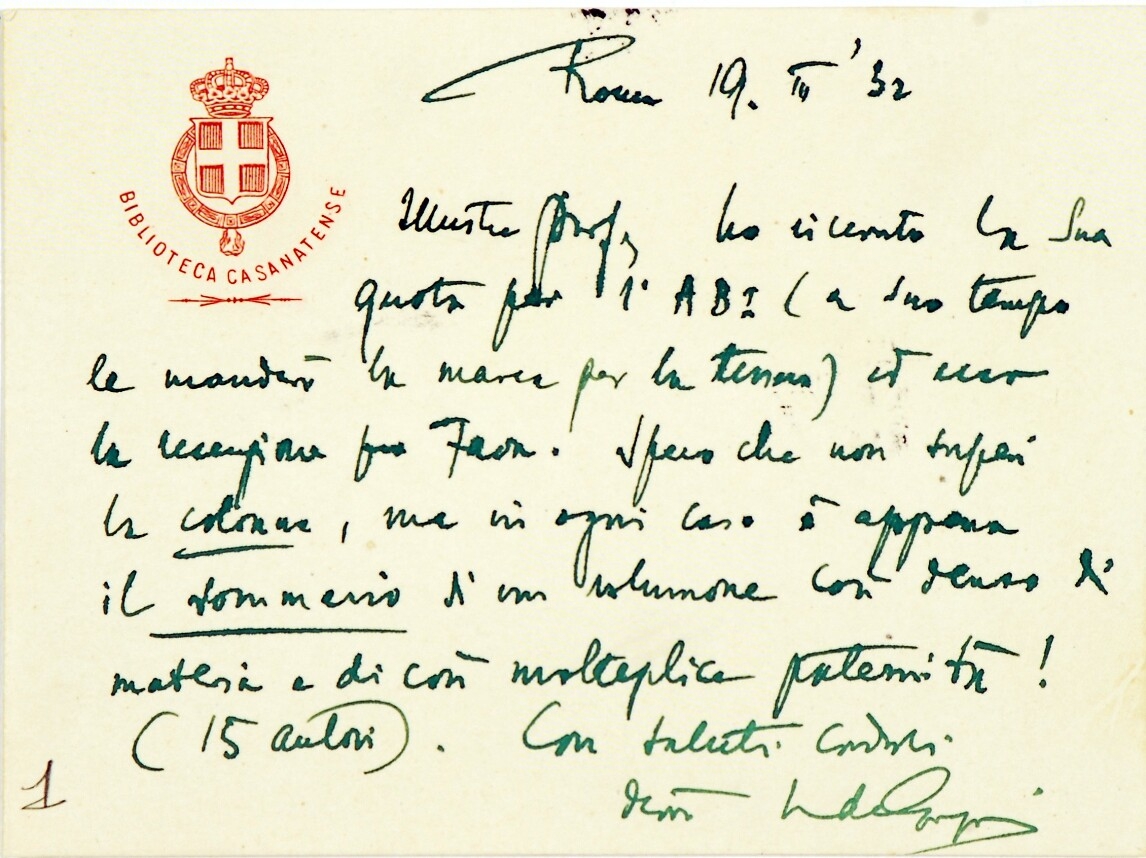 BIBLIOTECA CASANATENSE
Roma 19. III '32
Illustre Prof, ho ricevuto la Sua
quota per l'ABI (a suo tempo
le manderò la marca per la tessera) ed ecco
la recensione pra Faon. Spero che non superi
la colonna, ma in ogni caso è appena
il sommario di un volumone così denso di
materia e di così molteplice paternità!
(15 autori). Con saluti cordiali
dev
1